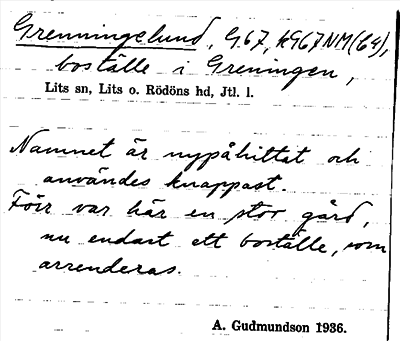 Grenningelund, G.67, kG67NM(64),
boställe i Greningen,
Lits sn, Lits o. Rödöns hd, Jtl. l.
Namnet är nypåhittat och
användes knappast.
Förr var här en stor gård,
nu endast ett boställe, som
arrenderas.
A. Gudmundson 1936.